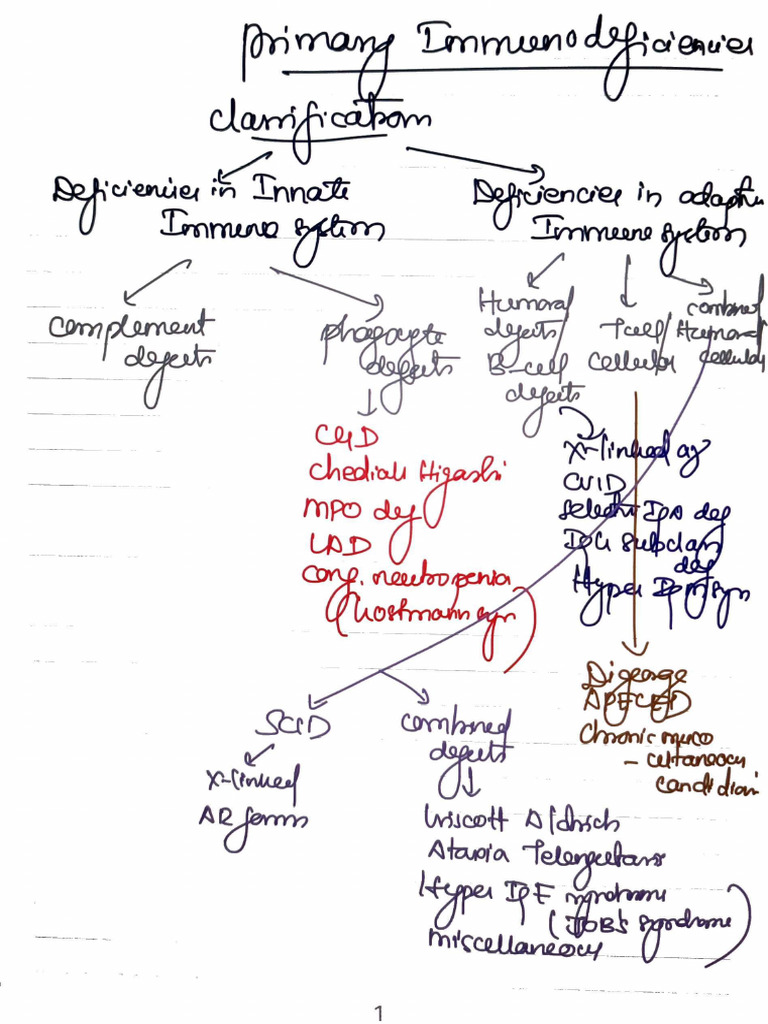 Primary Immunodeficiencies
Classification
Deficiencies in Innate
Immune system
Deficiencies in adaptive
Immune system
Complement
defects
phagocyte
defects
Humoral
defects/
B-cell
defects
T cell/
cellular
combined
Humoral/
cellular
CGD
Chediak Higashi
MPO def
LAD
Cong. neutropenia
(Kostmann syn)
X-linked ag
CVID
Selective IgA def
IgG subclass
def
Hyper IgM syn
Digeorge
APECED
Chronic muco
- cutaneous
candidiasis
SCID
X-linked
AR forms
combined
defects
Wiscott Aldrich
Ataxia Telengectasia
Hyper IgE syndrome
(JOB's syndrome)
miscellaneous
1